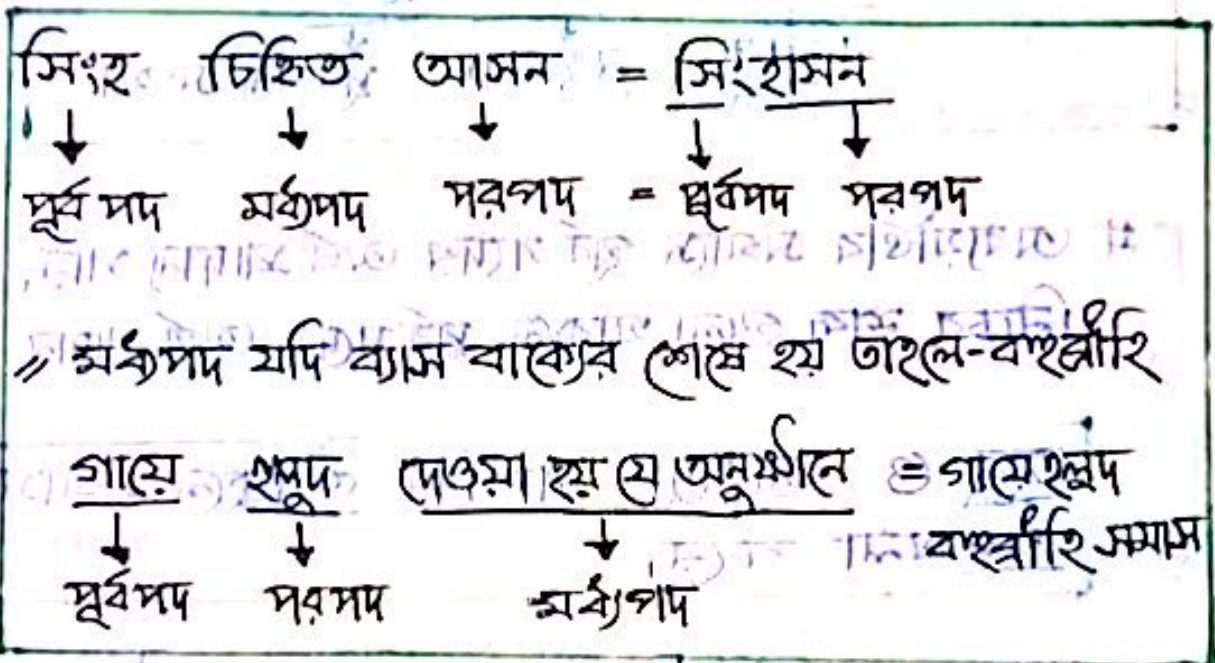 সিংহ চিহ্নিত আসন = সিংহাসন
↓ ↓ ↓ ↓ ↓
পূর্ব পদ মধ্যপদ পরপদ = পূর্বপদ পরপদ
// মধ্যপদ যদি ব্যাস বাক্যের শেষে হয় তাহলে-বহুব্রীহি
গায়ে হলুদ দেওয়া হয় যে অনুষ্ঠানে = গায়ে হলুদ
↓ ↓ ↓ বহুব্রীহি সমাস
পূর্বপদ পরপদ মধ্যপদ